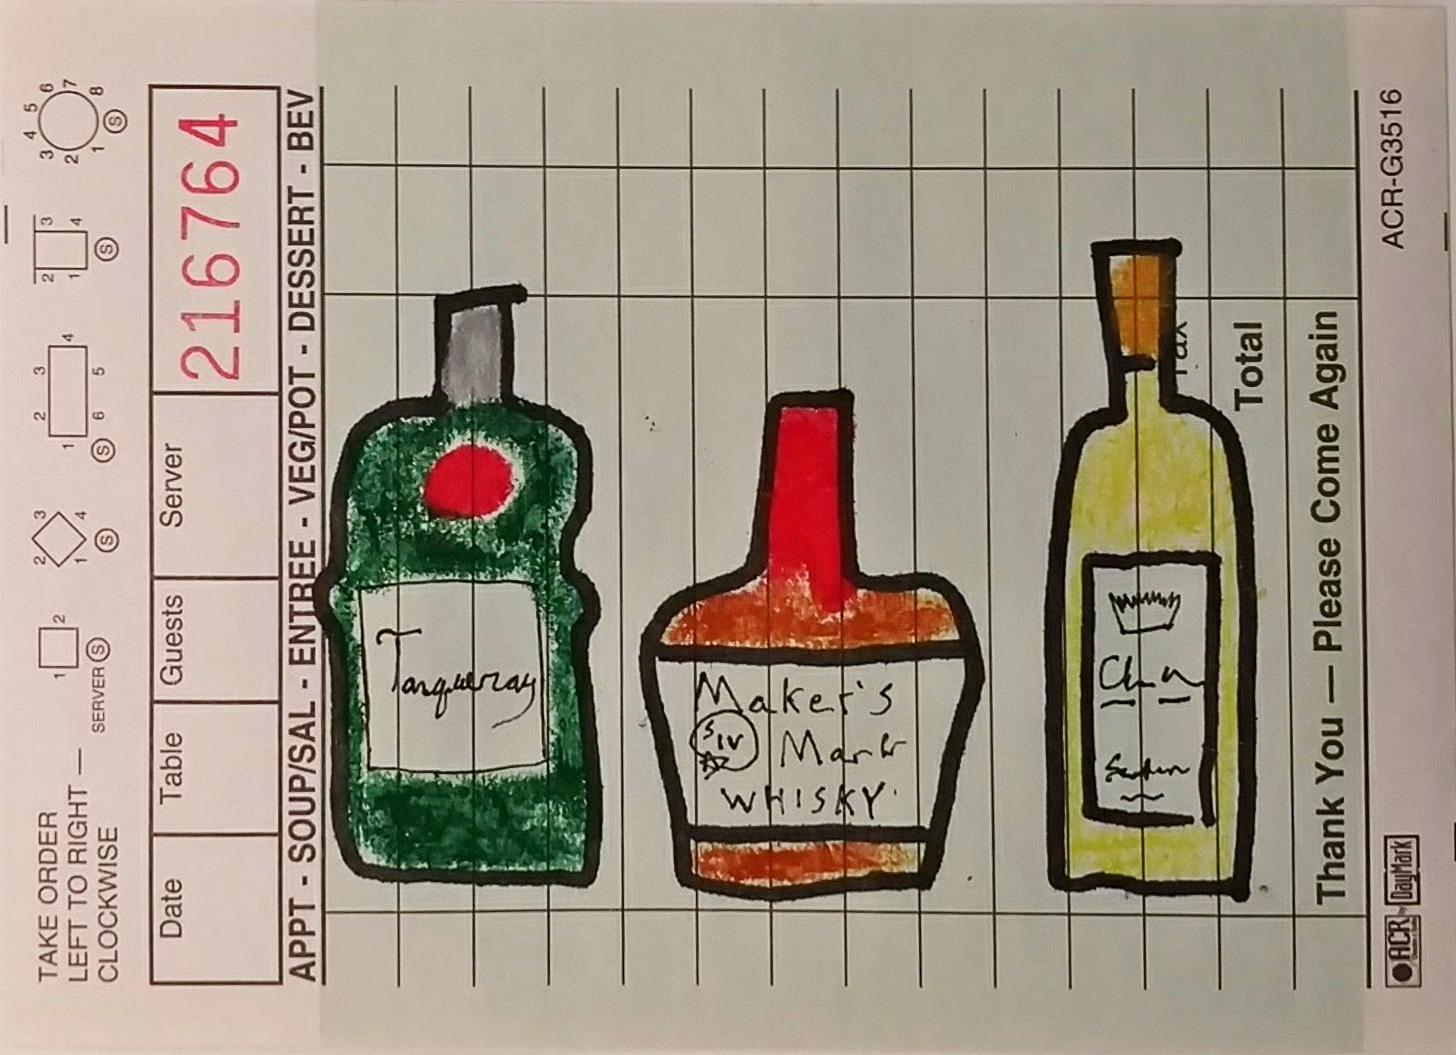 TAKE ORDER
LEFT TO RIGHT —
CLOCKWISE
SERVER S
1 2
1 2 3 4 S
1 2 3 4 5 6 S
1 2 3 4 S
1 2 3 4 5 6 7 8 S
Date Table Guests Server 216764
APPT - SOUP/SAL - ENTREE - VEG/POT - DESSERT - BEV
Tanqueray
Maker's
S IV Mark
WHISKY
Tax
Total
Thank You — Please Come Again
ACR by DayMark
ACR-G3516